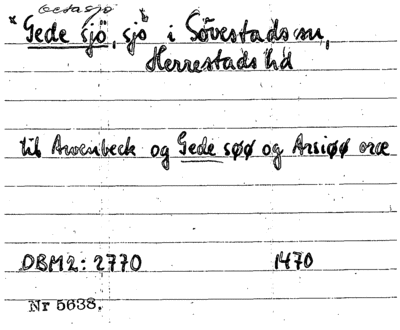 *Gede sjö, sjö i Sövestads sn,
Herrestads hd
till Awenbeck og Gede søø og Arsiøø oræ
DBM2: 2770 1470
Nr 5638.